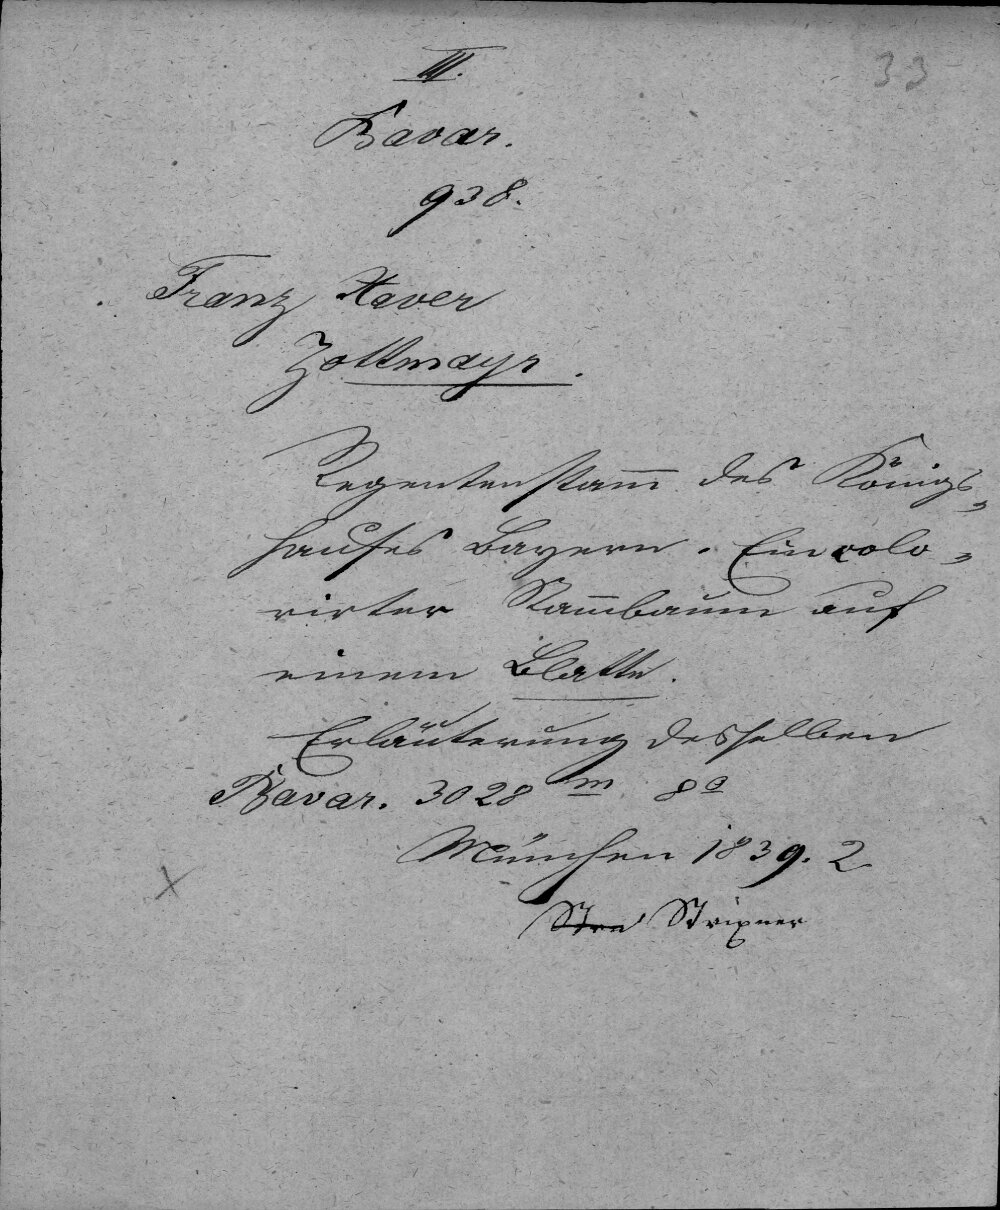 33
III.
Bavar.
938.
Franz Xaver
Zottmayr.
Regentenstam̄ des Königs-
hauses Bayern. Ein colo-
rirter Stam̄baum auf
einem Blatte.
Erläuterung desselben
Bavar. 3028 m 8o
München 1839. 2
Stra Strixner